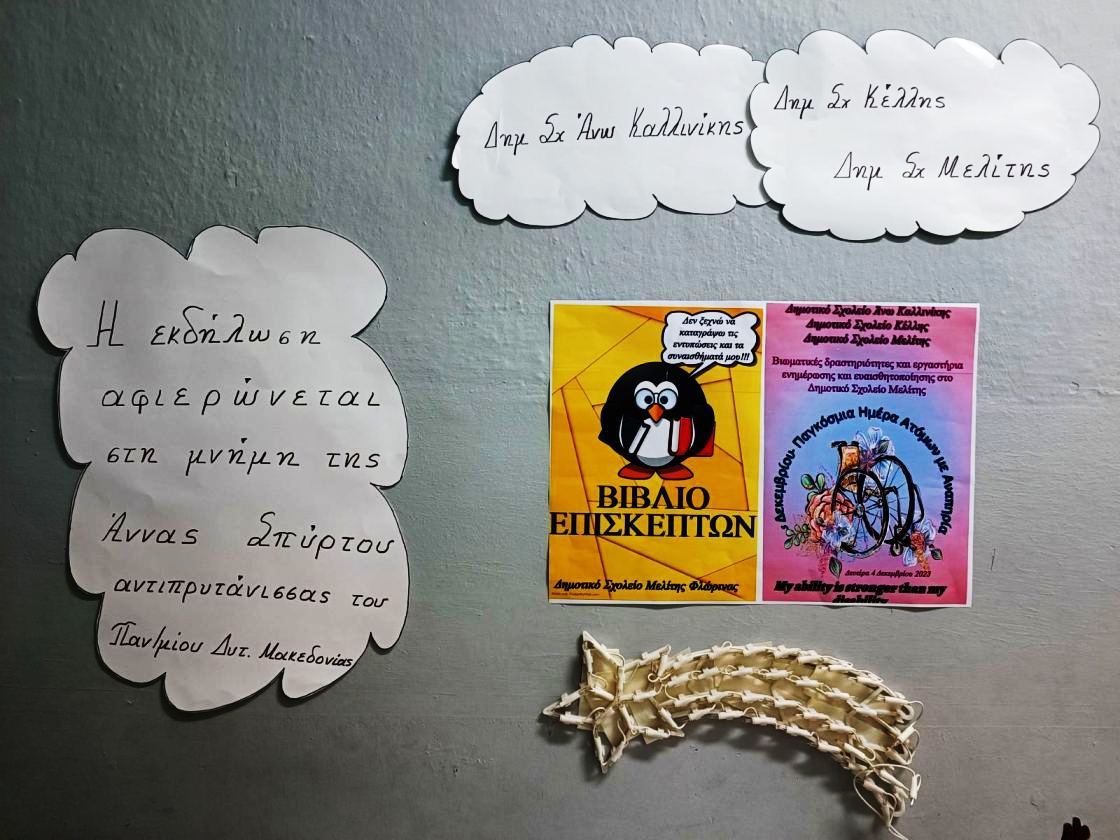 Δημ Σχ Άνω Καλλινίκης
Δημ Σχ Κέλλης
Δημ Σχ Μελίτης
Η εκδήλωση
αφιερώνεται
στη μνήμη της
Άννας Σπύρτου
αντιπρυτάνισσας του
Παν/μίου Δυτ. Μακεδονίας
Δεν ξεχνώ να
καταγράψω τις
εντυπώσεις και τα
συναισθήματά μου!!!
ΒΙΒΛΙΟ
ΕΠΙΣΚΕΠΤΩΝ
Δημοτικό Σχολείο Μελίτης Φλώρινας
Δημοτικό Σχολείο Άνω Καλλινίκης
Δημοτικό Σχολείο Κέλλης
Δημοτικό Σχολείο Μελίτης
Βιωματικές δραστηριότητες και εργαστήρια
ενημέρωσης και ευαισθητοποίησης στο
Δημοτικό Σχολείο Μελίτης
Δεκεμβρίου- Παγκόσμια Ημέρα Ατόμων με Αναπηρία
Δευτέρα 4 Δεκεμβρίου 2023
My ability is stronger than my